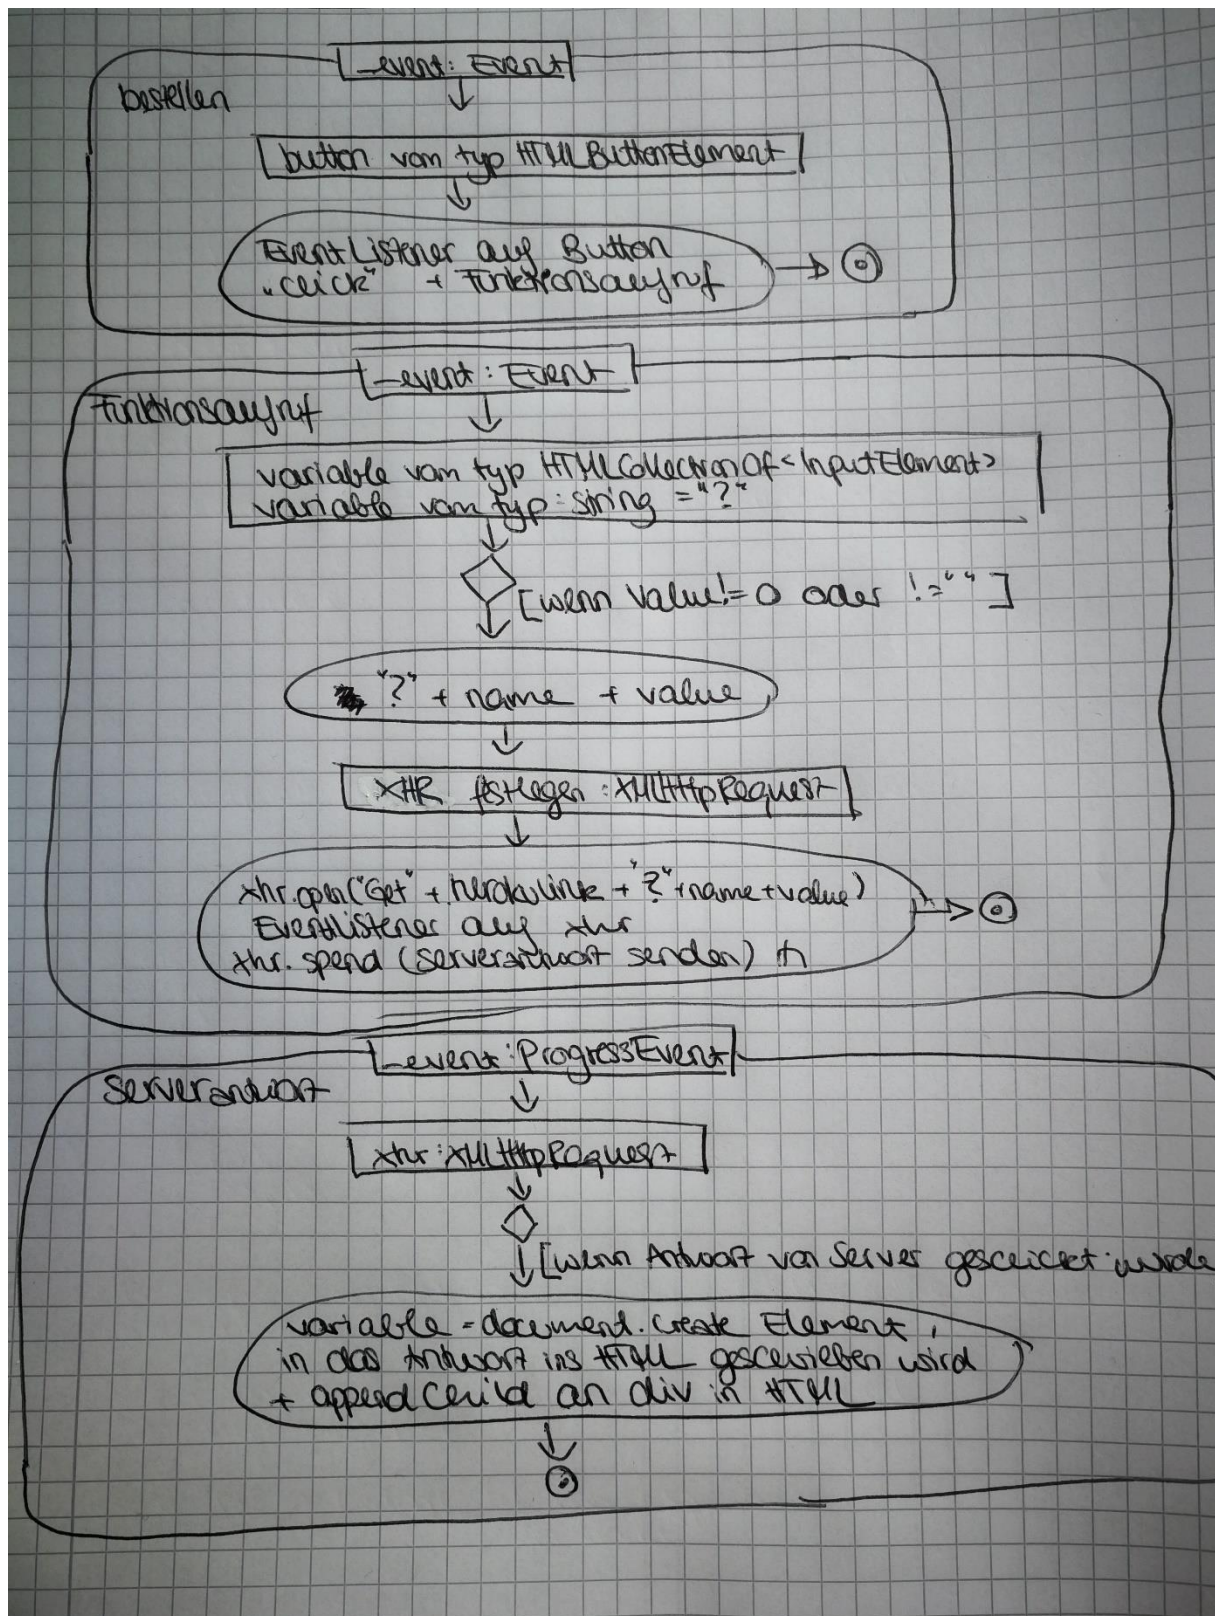 _event: Event
bestellen
button vom typ HTMLButtonElement
EventListener auf Button
"click" + Funktionsaufruf
_event: Event
Funktionsaufruf
variable vom typ HTMLCollectionOf<InputElement>
variable vom typ: string = "?"
[wenn value != 0 oder != ""]
"?" + name + value
XHR festlegen: XMLHttpRequest
xhr.open("Get" + herokulink + "?" + name + value)
EventListener auf xhr
xhr. spend (serverantwort senden)
_event: ProgressEvent
serverantwort
xhr: XMLHttpRequest
[wenn Antwort von Server geschickt wurde
variable = document. create Element,
in das Antwort ins HTML geschrieben wird
+ appendChild an div in HTML